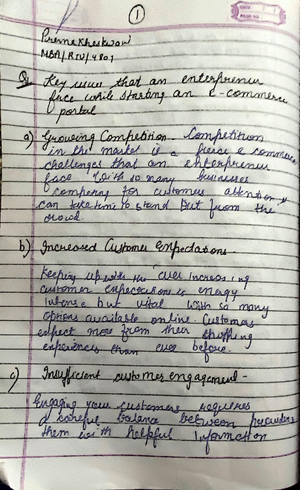 1
DATE
PAGE NO.
Prerna Kheskwani
MBA/RIU/4801
Q. Key issues that an enterpreneur
face while starting an e-commerce
portal
a) Growing Competition - Competition
in the market is a fierce e commerce
challenges that an enterpreneur
face. With so many businesses
compering for customer attention, it
can take time to stand out from the
crowd
b) Increased Customer Expectations -
Keeping up with the ever increasing
customer expectation is energy
intense but vital with so many
options available online. Customers
expect more from their shopping
experiences than ever before.
c) Insufficient customer engagement -
Engaging your customers requires
a careful balance between persuading
them with helpful information